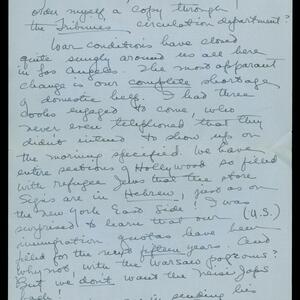 order myself a copy through
the Tribune's circulation department?
War conditions have closed
quite snugly around us all here
in Los Angeles. The most apparant
change is our complete shortage
of domestic help. I had three
cooks engaged to come, who
never even telephoned that they
didn't intend to show up on
the morning specified. We have
entire sections of Hollywood so filled
with refugee Jews that the store
signs are in Hebrew, just as on
the New York East Side! I was
surprised to learn that our (U.S.)
immigration quotas have been
filled for the next fifteen years. And
why not, with the Warsaw pogroms?
But we don't want the Japs
back!
in sending his